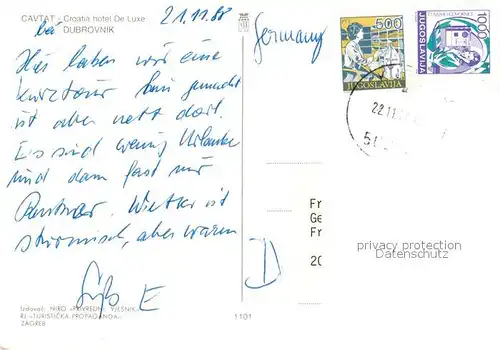 CAVTAT - Croatia hotel De Luxe
bei DUBROVNIK
21.11.88
Germany
500
JUGOSLAVIJA
1000
JUGOSLAVIJA
22.11
Hier haben wir eine
kurztour hin gemacht
ist aber nett dort.
Es sind wenig Urlauber
und dann fast nur
Rentner. Wetter ist
stürmisch, aber warm
E
D
Fr
Ge
Fr
20
privacy protection
Datenschutz
Izdavač: NIRO »PRIVREDNI VJESNIK«
RJ »TURISTIČKA PROPAGANDA«
ZAGREB
1101